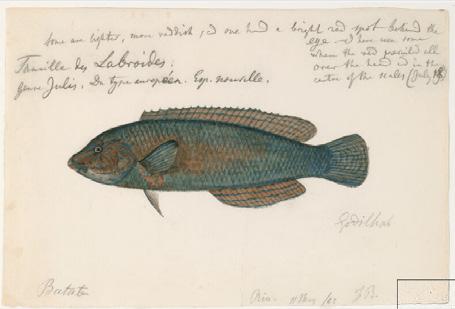 some are lighter, more reddish, & one had a bright red spot behind the
eye - I have seen some
where the red prevailed all
over the head & in the
centre of the scales (July
Famille des Labroides.
genre Julis. Du type européen. Esp. nouvelle.
Batata